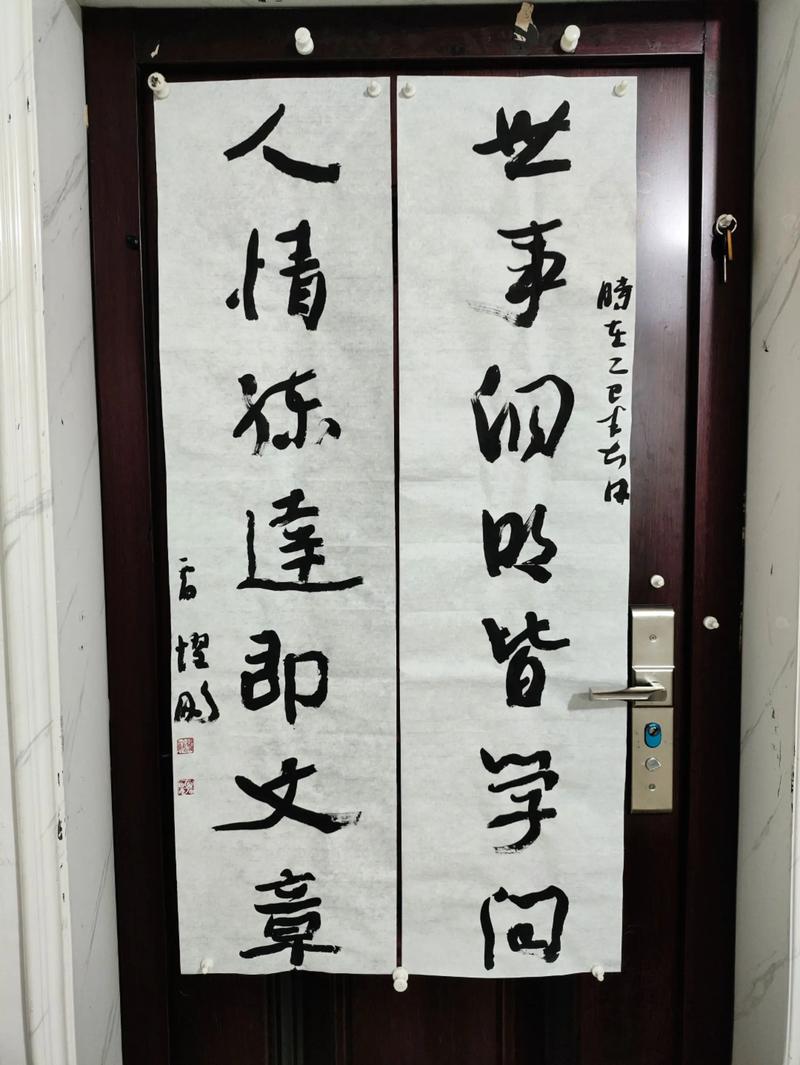 時在乙巳
世事洞明皆学问
人情练達即文章
雷燿